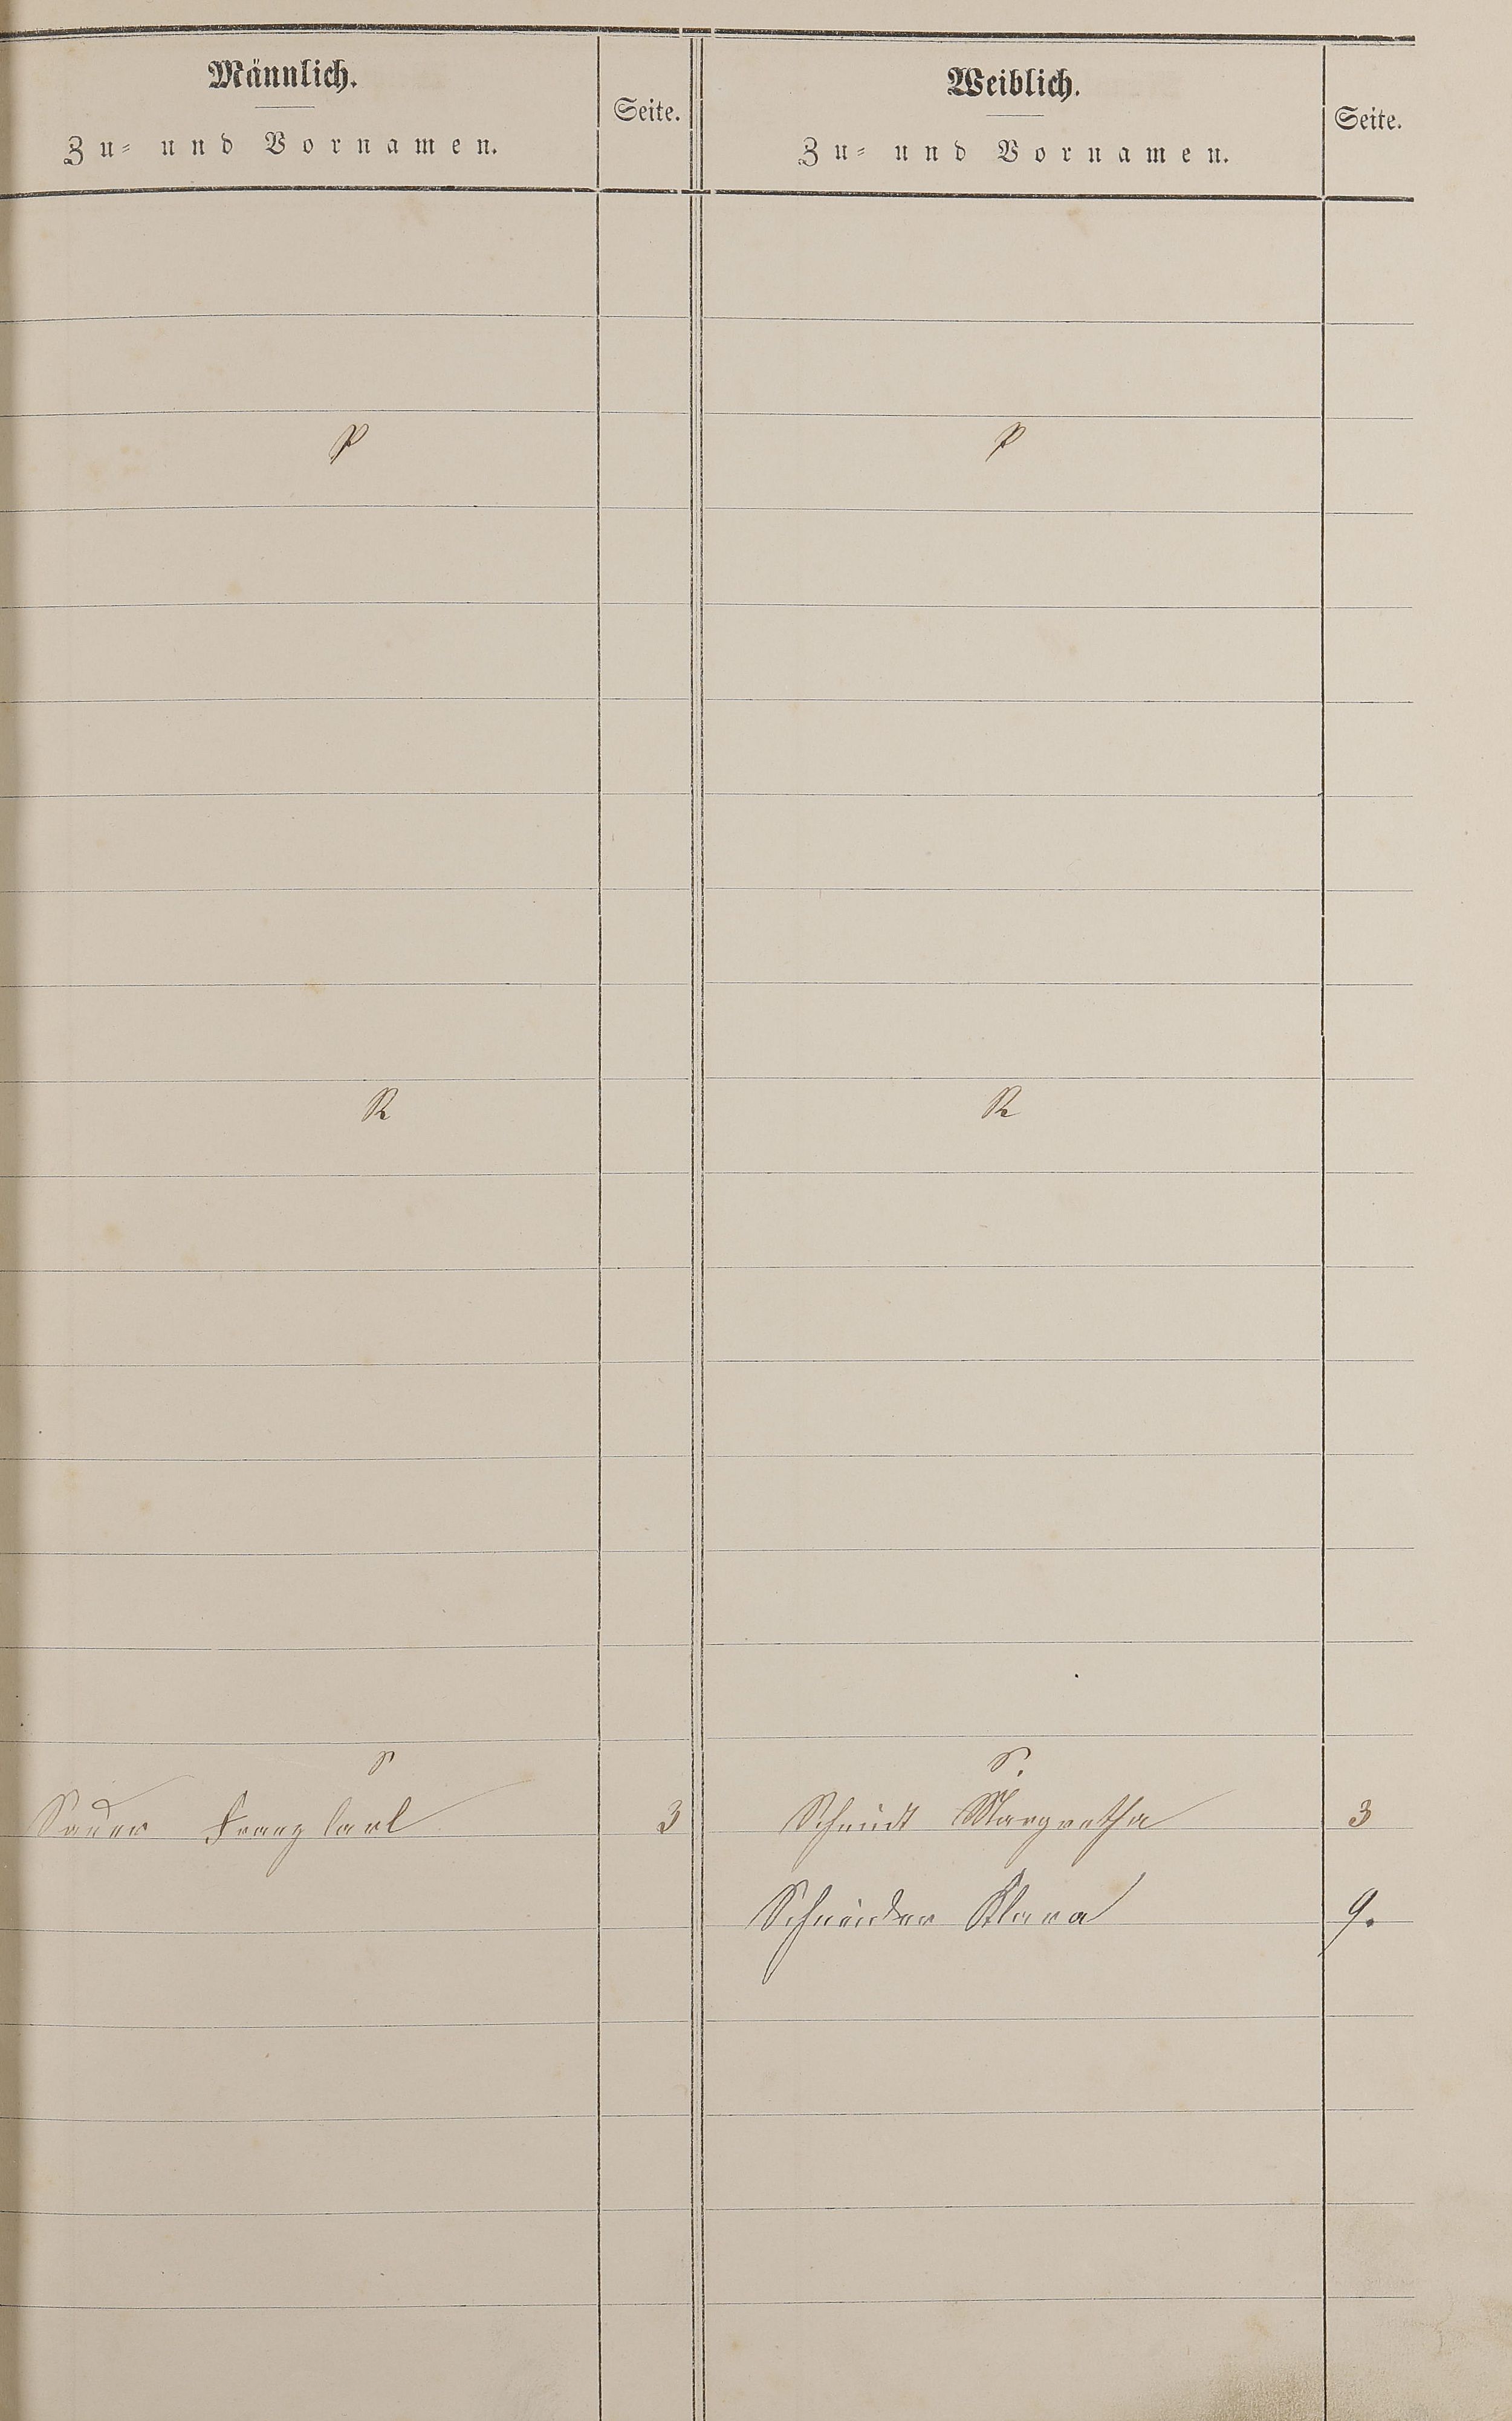 Männlich.
Zu- und Vornamen.
Seite.
Weiblich.
Zu- und Vornamen.
Seite.
P
P
R
R
S
S.
Sauer Franz Carl 3
Schmidt Margretha 3
Schneider Klara 9.